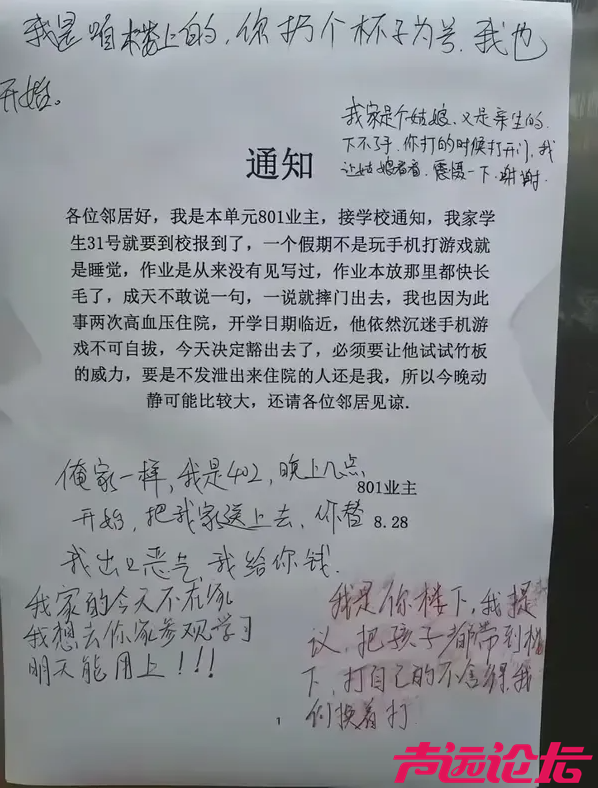 我是咱楼上的,你扔个杯子为号.我也
开始。
我家是个姑娘.又是亲生的.
下不了手.你打的时候打开门,我
让姑娘看看.震慑一下.谢谢.
通知
各位邻居好，我是本单元801业主，接学校通知，我家学
生31号就要到校报到了，一个假期不是玩手机打游戏就
是睡觉，作业是从来没有见写过，作业本放那里都快长
毛了，成天不敢说一句，一说就摔门出去，我也因为此
事两次高血压住院，开学日期临近，他依然沉迷手机游
戏不可自拔，今天决定豁出去了，必须要让他试试竹板
的威力，要是不发泄出来住院的人还是我，所以今晚动
静可能比较大，还请各位邻居见谅.
801业主
8.28
俺家一样,我是402,晚上几点
开始,把我家送上去,你替
我出口恶气,我给你钱.
我家的今天不在家
我想去你家参观学习
明天能用上!!!
我是你楼下,我提
议,把孩子都带到楼
下,打自己的不舍得.我
们换着打
1
声远论坛